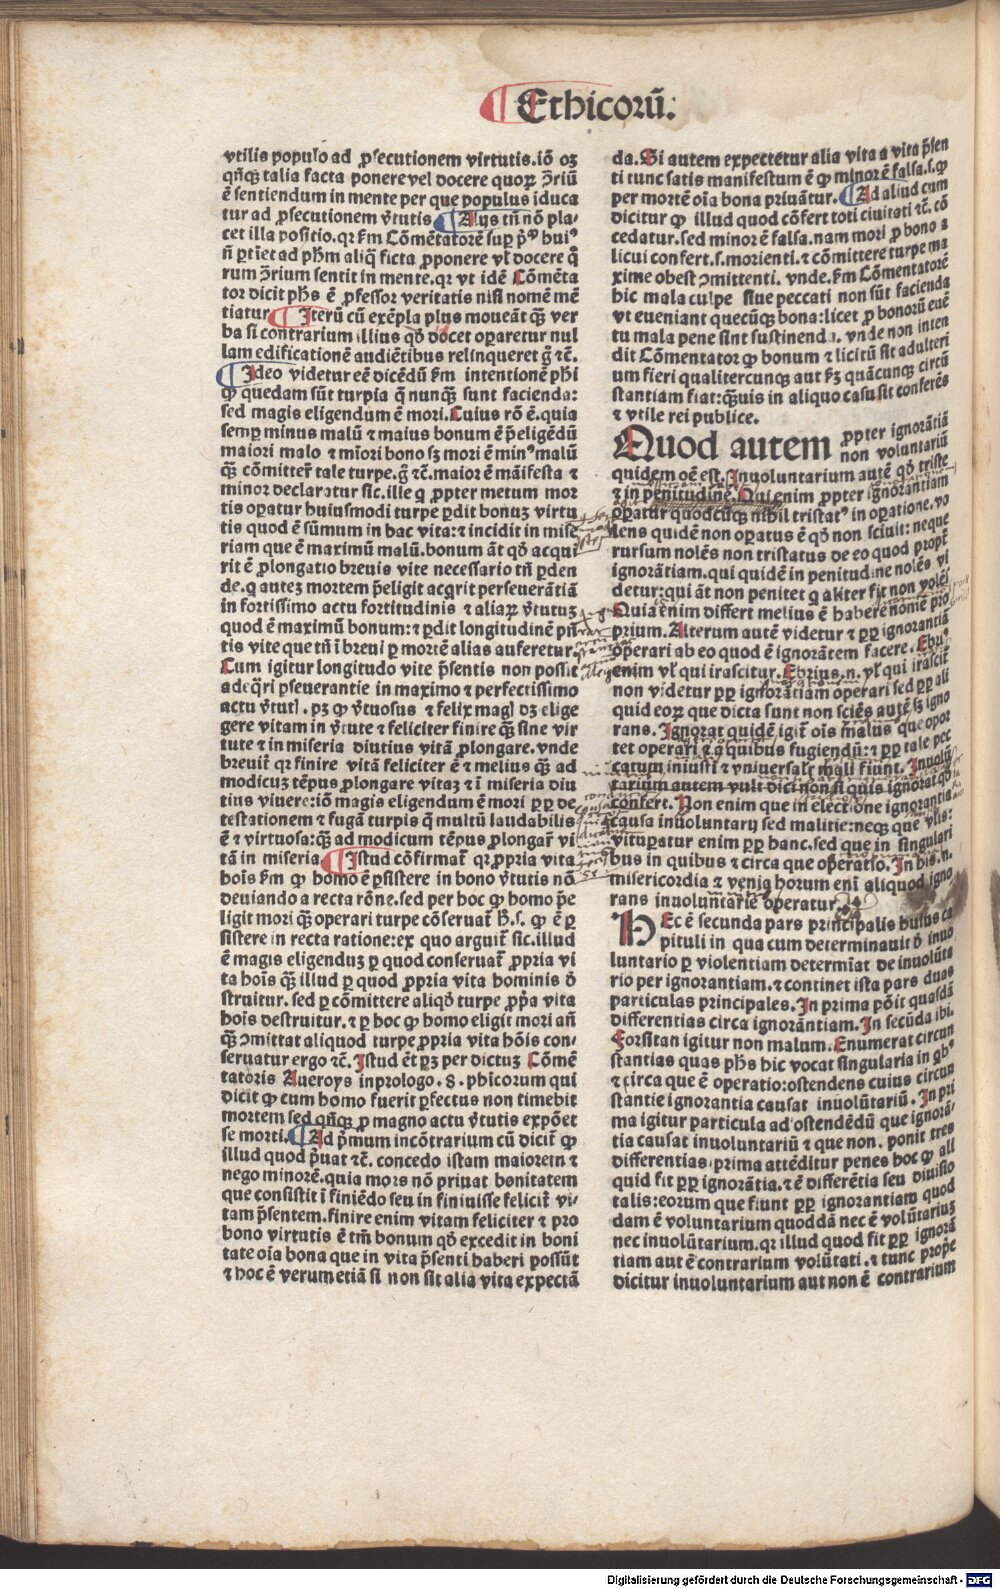 Ethicorū.
vtilis populo ad ꝓsecutionem virtutis. iō oꝫ
qn̄qꝫ talia facta ponere vel docere quoꝝ ↄ̄riū
ē sentiendum in mente per que populus īduca
tur ad ꝓsecutionem v̄tutis Alijs tn̄ nō pla⸗
cet illa positio. qꝛ ẜm Cōmētatorē suꝑ pꝰ huiꝰ
ñ ꝑtiet ad phm aliq̄ ficta ꝓponere vl̓ docere q̄
rum ↄ̄rium sentit in mente. qꝛ vt idē Cōmēta
tor dicit phs ē ꝓfessor veritatis nisi nomē mē
tiatur Iterū cū exēpla plus moueāt qꝫ ver
ba si contrarium illius qd̓ docet oꝑaretur nul
lam edificationē audiētibus relinqueret g̊ ⁊c̄.
Ideo videtur eē dicēdū ẜm intentionē phi
ꝙ quedam sūt turpia q̄ nunqꝫ sunt facienda:
sed magis eligendum ē mori. Cuius rō ē. quia
semꝑ minus malū ⁊ maius bonum ē p̄eligēdū
maiori malo ⁊ mīori bono sꝫ mori ē minꝰ malū
qꝫ cōmitteꝛ̄ tale turpe. g̊ ⁊c̄. maior ē māifesta ⁊
minor declaratur sic. ille q̇ ꝓpter metum mor
tis oꝑatur huiusmodi turpe ꝑdit bonuꝫ virtu
tis quod ē sūmum in hac vita: ⁊ incidit in mise
riam que ē maximū malū. bonum āt qd̓ acqui
rit ē ꝓlongatio breuis vite necessario tn̄ ꝑden
de. q̇ auteꝫ mortem p̄eligit acq̇rit perseuerātiā
in fortissimo actu fortitudinis ⁊ aliaꝝ v̄tutuꝫ
quod ē maximū bonum: ⁊ ꝑdit longitudinē pn̄
tis vite que tn̄ ī breui ꝑ mortē alias auferetur.
Cum igitur longitudo vite p̄sentis non possit
adeq̄ri ꝑseuerantie in maximo ⁊ perfectissimo
actu v̄tutꝭ. pꝫ ꝙ v̄tuosus ⁊ felix magꝭ dꝫ elige
gere vitam in v̄tute ⁊ feliciter finire qꝫ sine vir
tute ⁊ in miseria diutius vitā ꝓlongare. vnde
breuiꝛ̄ qꝛ finire vitā feliciter ē ⁊ melius qꝫ ad
modicuꝫ tēpus ꝓlongare vitaꝫ ⁊ ī miseria diu
tius viuere: iō magis eligendum ē mori ꝓꝑ de
testationem ⁊ fugā turpis q̄ multū laudabilis
ē ⁊ virtuosa: qꝫ ad modicum tēpus ꝓlongaꝛ̄ vi
tā in miseria Istud cōfirmaꝛ̄ qꝛ ꝓpria vita
hoīs ẜm ꝙ homo ē ꝑsistere in bono v̄tutis nō
deuiando a recta rōne. sed per hoc ꝙ homo p̄e
ligit mori qꝫ operari turpe cōseruaꝛ̄ h̄. s. ꝙ ē ꝑ
sistere in recta ratione: ex quo arguiꝛ̄ sic. illud
ē magis eligenduꝫ ꝑ quod conseruaꝛ̄ ꝓpria vi
ta hoīs qꝫ illud ꝑ quod ꝓpria vita hominis d̓
struitur. sed ꝑ cōmittere aliqd̓ turpe ꝓp̄a vita
hoīs destruitur. ⁊ ꝑ hoc ꝙ homo eligit mori añ
qꝫ ↄmittat aliquod turpe ꝓpria vita hōis con⸗
seruatur ergo ⁊c̄. Istud ēt pꝫ per dictuꝫ Cōmē
tatoris Aueroys in prologo. 8. phicorum qui
dicit ꝙ cum homo fuerit ꝑfectus non timebit
mortem sed qn̄qꝫ ꝓ magno actu v̄tutis expōet
se morti. Ad p̄mum incōtrarium cū diciꝛ̄ ꝙ
illud quod p̄uat ⁊c̄. concedo istam maiorem ⁊
nego minorē. quia mors nō priuat bonitatem
que consistit ī finiēdo seu in finiuisse feliciꝛ̄ vi⸗
tam p̄sentem. finire enim vitam feliciter ⁊ pro
bono virtutis ē tm̄ bonum qd̓ excedit in boni
tate oīa bona que in vita p̄senti haberi possūt
⁊ hoc ē verum etiā si non sit alia vita expectā
da. Si autem expectetur alia vita a vita p̄sen
ti tunc satis manifestum ē ꝙ minor ē falsa. s. ꝙ
per mortē oīa bona priuātur. Ad aliud cum
dicitur ꝙ illud quod cōfert toti ciuitati ⁊c̄. cō
cedatur. sed minor ē falsa. nam mori ꝓ bono a
licui confert. s. morienti. ⁊ cōmittere turpe ma
xime obest ↄmittenti. vnde. ẜm Cōmentatorē
hic mala culpe siue peccati non sūt facienda
vt eueniant quecūqꝫ bona: licet ꝓ bonorū euē
tu mala pene sint sustinenda. vnde non inten
dit Cōmentator ꝙ bonum ⁊ licitū sit adulteri
um fieri qualitercunqꝫ aut ẜꝫ quācunqꝫ circū
stantiam fiat: qꝫuis in aliquo casu sit conferēs
⁊ vtile rei publice.
Quod autem ꝓpter ignorātiā
non voluntariū
quidem oē est. Inuoluntarium autē qd̓ triste
⁊ in penitudine. Qui enim ꝓpter ignorantiam
oꝑatur quodcūqꝫ nihil tristatꝰ in oꝑatione. vo
lens quidē non oꝑatus ē qd̓ non sciuit: neque
rursum nolēs non tristatus de eo quod propt̄
ignorātiam. qui quidē in penitudine nolēs vi
detur: qui āt non penitet q̇ aliter fit non volēs
Quia enim differt melius ē habere nomē pro
prium. Alterum autē videtur ⁊ ꝓꝑ ignorantiā
operari ab eo quod ē ignorātem facere. Ebriꝰ
enim vl̓ qui irascitur. Ebrius. n. vl̓ qui irasciꝛ̄
non videtur ꝓꝑ ignorātiam operari sed ꝓꝑ ali
quid eoꝝ que dicta sunt non sciēs autē sꝫ igno
rans. Ignorat quidē igiꝛ̄ oīs malus que opor
tet operari ⁊ a quibus fugiendū: ⁊ ꝓꝑ tale pec
catum iniusti ⁊ vniuersalꝭ mali fiunt. Inuolū
tarium autem vult dici non si quis ignorat qd̓
confert. Non enim que in electione ignorantia
causa inuoluntarij sed malitie: neqꝫ que vlis:
vituꝑatur enim ꝓꝑ hanc. sed que in singulari
bus in quibus ⁊ circa que operatio. In his. n.
misericordia ⁊ venia horum eni aliquod igno
rans inuoluntarie operatur.
HEc ē secunda pars principalis huius ca
pituli in qua cum determinauit d̓ inuo
luntario ꝑ violentiam determīat de inuolūta
rio per ignorantiam. ⁊ continet ista pars duas
particulas principales. In prima pōit quasdā
differentias circa ignorāntiam. In secūda ibi.
Forsitan igitur non malum. Enumerat circun
stantias quas phs hic vocat singularia in qbꝰ
⁊ circa que ē operatio: ostendens cuius circun
stantie ignorantia causat inuolūtariū. In pri
ma igitur particula ad ostendēdū que ignorā⸗
tia causat inuoluntariū ⁊ que non. ponit tres
differentias. prima attēditur penes hoc ꝙ ali
quid fit ꝓꝑ ignorātia. ⁊ ē differētia seu diuisio
talis: eorum que fiunt ꝓꝑ ignorantiam quod
dam ē voluntarium quoddā nec ē volūtariuꝫ
nec inuolūtarium. qꝛ illud quod fit ꝓꝑ ignorā
tiam aut ē contrarium volūtati. ⁊ tunc prop̄e
dicitur inuoluntarium aut non ē contrarium
Digitalisierung gefördert durch die Deutsche Forschungsgemeinschaft - DFG